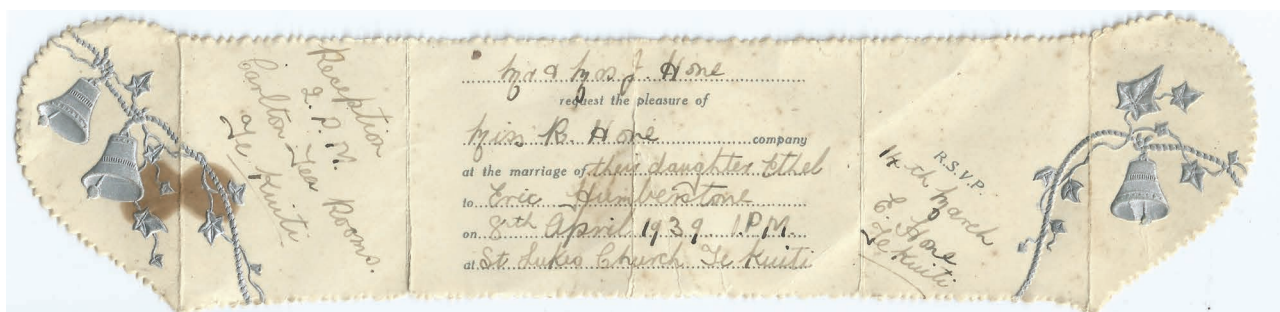 Reception
2. P. M.
Carlton Tea Rooms.
Te Kuiti
Mr & Mrs J. Hone
request the pleasure of
Miss R. Hone company
at the marriage of their daughter Ethel
to Eric Humberstone
on 8th April 1939. 1.P.M.
at St Lukes Church Te Kuiti
R.S.V.P.
14th March
E. Hone
Te Kuiti